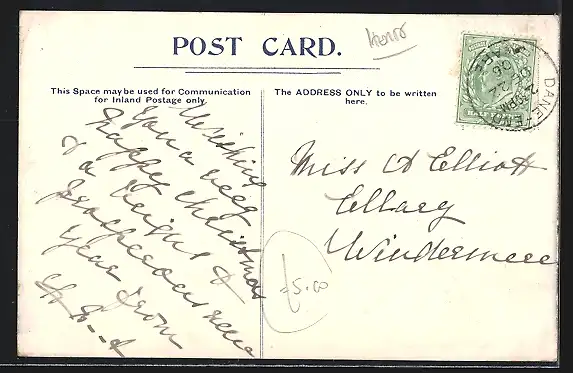 Herts
POST CARD.
This Space may be used for Communication
for Inland Postage only.
The ADDRESS ONLY to be written
here.
Wishing
you a very
happy Christmas
& a bright &
prosperous new
year from
Miss A Elliott
Ellary
Windermere
£5.00
DANE-END
2.30PM
DC 22
06
WARE
HALF